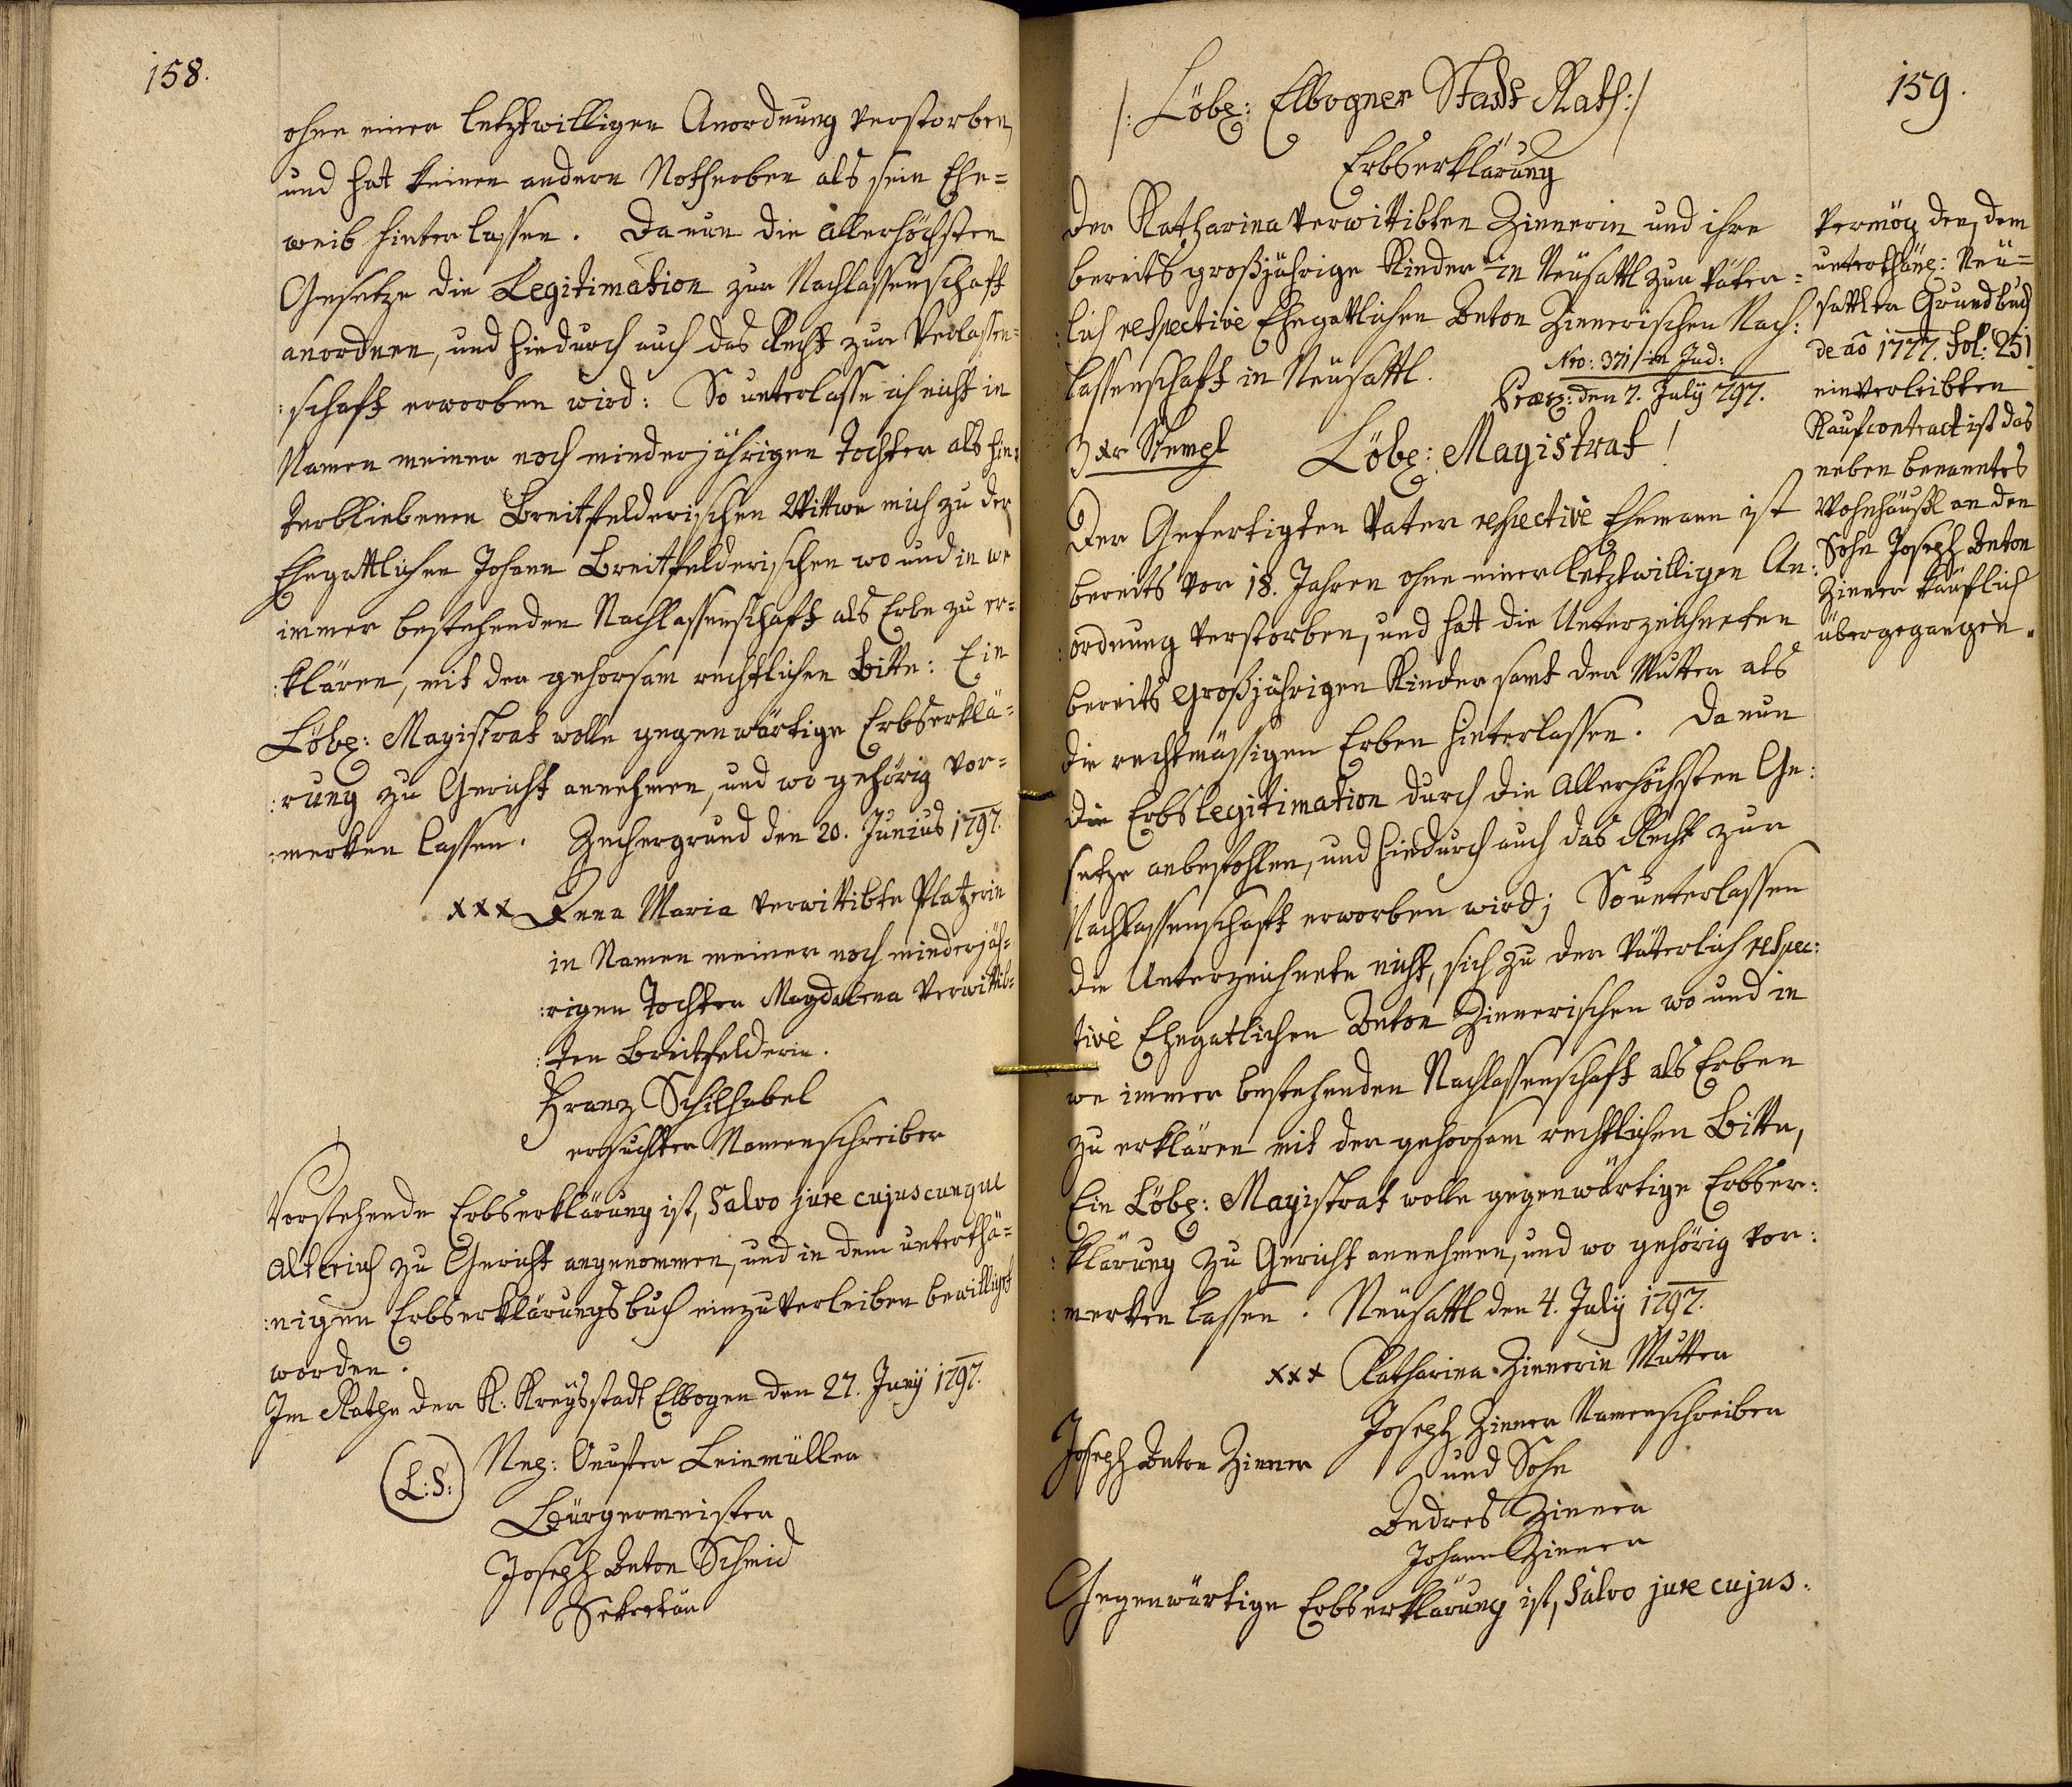 158.
ohne einer letztwilligen Anordnung verstorben,
und hat keinen andern Notherben als sein Ehe=
weib hinterlassen. Da nun die allerhöchsten
Gesetze die Legitimation zur Nachlassenschaft
anordnen, und hiedurch auch das Recht zur Verlassen=
:schaft erworben wird: So unterlasse ich nicht in
Namen meiner noch minderjährigen Tochter als hin:
terbliebenen Breitfelderischen Wittwe mich zu der
Ehegattlichen Johann Breitfelderischen wo und in we
immer bestehenden Nachlassenschaft als Erbe zu er=
:klären, mit der gehorsam rechtlichen Bitte: Ein
Löbl: Magistrat wolle gegenwärtige Erbserklä=
:rung zu Gericht annehmen, und wo gehörig vor=
:merken lassen. Zechergrund den 20. Junius 1797.
xxx Anna Maria verwittibte Platzerin
in Namen meiner noch minderjäh=
:rigen Tochter Magdalena verwittib=
:ten Breitfelderin.
Franz Schilhabel
ersuchter Namenschreiber
Vorstehende Erbserklärung ist, Salvo jure cujuscunque
alterius zu Gericht angenommen, und in dem unterthä=
:nigen Erbserklärungsbuch einzuverleiben bewilligt
worden.
Im Rathe der K: Kreysstadt Elbogen den 27. Juny 1797.
(L:S:)
Leinmüller
Bürgermeister
Joseph Anton Schmid
Sekretär
159.
/: Löbl: Elbogner Stadt Rath :/
Erbserklärung
der Katharina verwittibten Zinnerin und ihre
bereits großjährige Kinder in Neüsattl zur väter=
:lich respective Ehegattlichen Anton Zinnerischen Nach:
lassenschaft in Neüsattl.
Nro: 371 / in Jud:
Præs: den 7. July 797.
3 xr Stempl
Löbl: Magistrat!
Der Gefertigten Vater respective Ehemann ist
bereits vor 18. Jahren ohne einer letztwilligen An:
:ordnung verstorben, und hat die Unterzeichneten
bereits großjährigen Kinder samt der Mutter als
die rechtmässigen Erben hinterlassen. Da nun
die Erbslegitimation durch die Allerhöchsten Ge:
setze anbefohlen, und hiedurch auch das Recht zur
Nachlassenschaft erworben wird; So unterlassen
die Unterzeichnete nicht, sich zu der väterlich respec:
tive Ehegatlichen Anton Zinnerischen wo und in
we immer bestehenden Nachlassenschaft als Erben
zu erklären mit der gehorsam rechtlichen Bitte,
Ein Löbl: Magistrat wolle gegenwärtige Erbser:
:klärung zu Gericht annehmen, und wo gehörig vor:
:merken lassen. Neüsattl den 4. July 1797.
xxx Katharina Zinnerin Mutter
Joseph Zinner Namenschreiber
und Sohn
Joseph Anton Zinner
Andres Zinner
Johann Zinner
Gegenwärtige Erbserklärung ist, Salvo jure cujus:
Vermög der, dem
unterthäng: Neü=
sattler Grundbuch
de aõ 1777. Fol: 251
einverleibten
Kaufcontract ist das
neben benanntes
Wohnhäusl an den
Sohn Joseph Anton
Zinner käuflich
übergegangen.